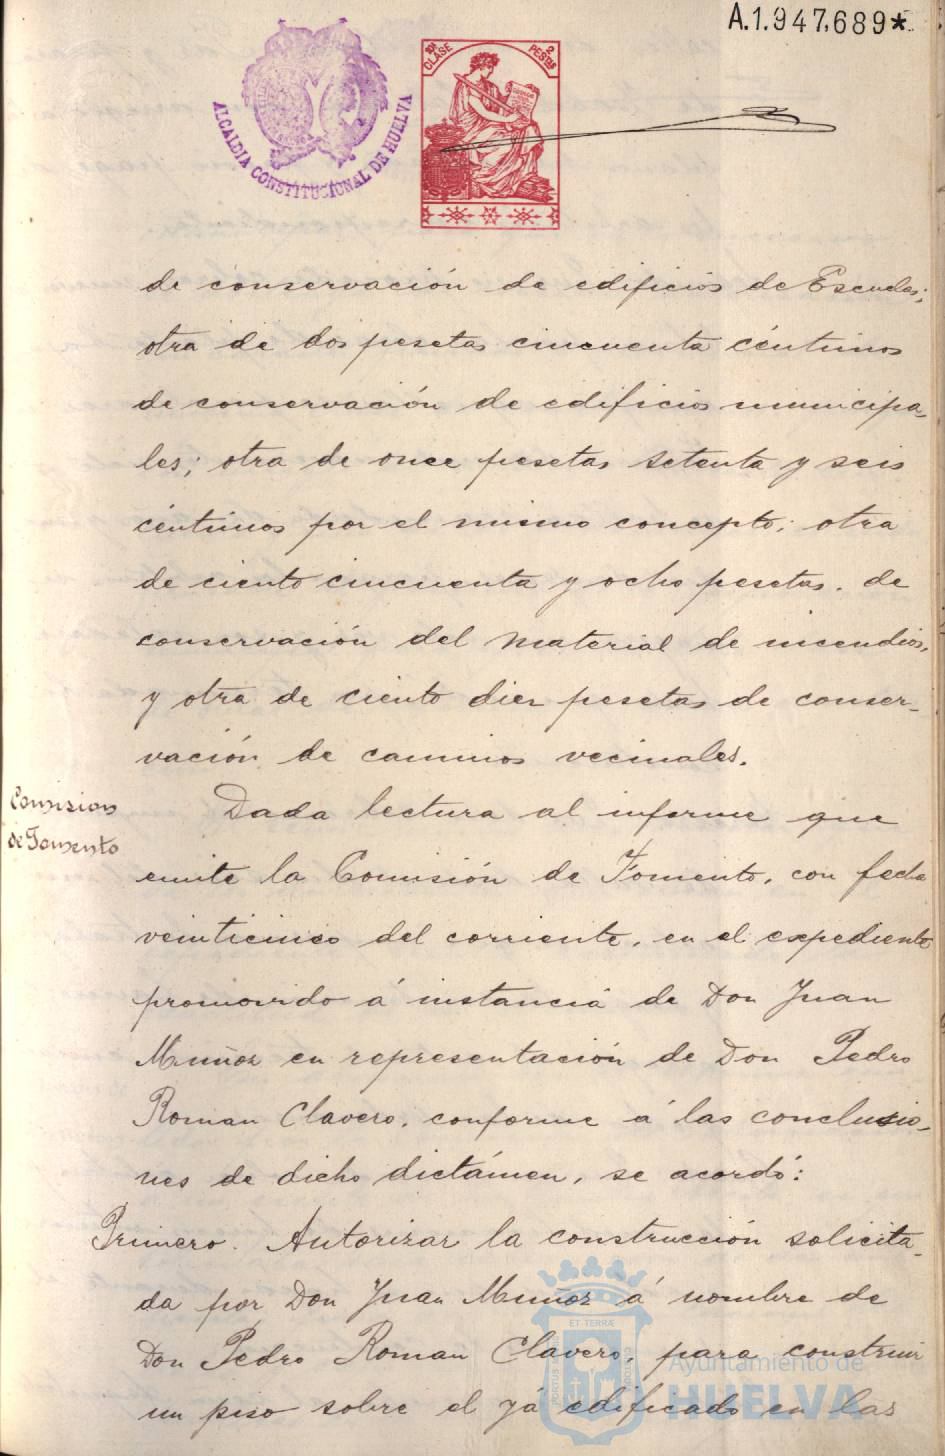 A.1.947,689*
ALCALDIA CONSTITUCIONAL DE HUELVA
10ª CLASE
2 PESETAS
de conservación de edificios de Escuelas;
otra de dos pesetas cincuenta céntimos
de conservación de edificios municipa-
les; otra de once pesetas setenta y seis
céntimos por el mismo concepto; otra
de ciento cincuenta y ocho pesetas. de
conservación del material de incendios,
y otra de ciento diez pesetas de conser-
vación de caminos vecinales.
Comision
de Fomento
Dada lectura al informe que
emite la Comisión de Fomento, con fecha
veinticinco del corriente, en el expediente
promovido á instancia de Don Juan
Muñoz en representación de Don Pedro
Roman Clavero, conforme á las conclusio-
nes de dicho dictámen, se acordó:
Primero. Autorizar la construcción solicita-
da por Don Juan Muñoz á nombre de
Don Pedro Roman Clavero, para construir
un piso sobre el yá edificado en las
ET TERRÆ
Ayuntamiento de
HUELVA